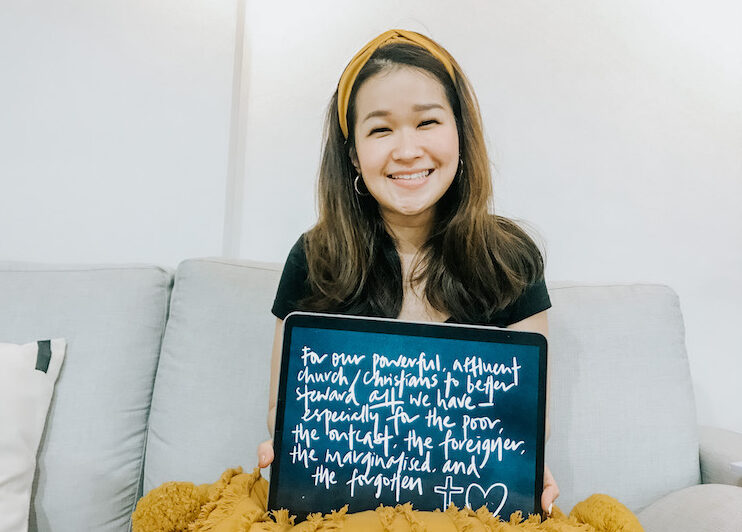 For our powerful, affluent
church/Christians to better
steward all we have –
especially for the poor,
the outcast, the foreigner,
the marginalised, and
the forgotten